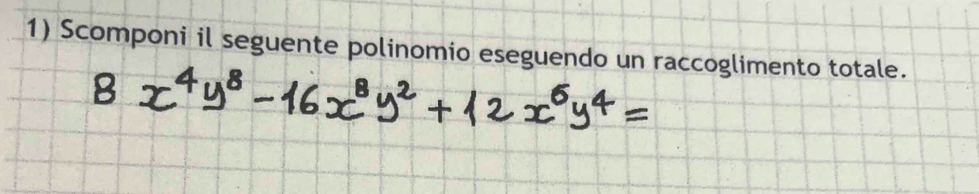 1) Scomponi il seguente polinomio eseguendo un raccoglimento totale.
8 x⁴y⁸ - 16x⁸y² + 12x⁶y⁴ =